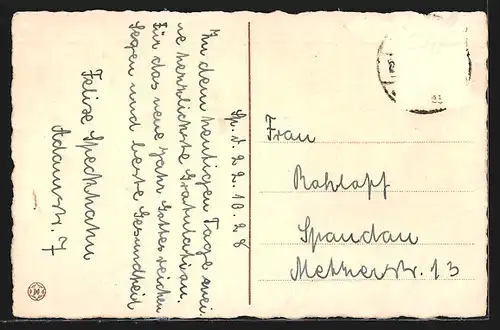 Sp. d. 22. 10. 28
Zu dem heutigen Tage mei
ne herzlichste Gratulation.
Für das neue Jahr Gottes reichen
Segen und beste Gesundheit
Felize Spechhahn
Adamstr. 7
Frau
Rohloff
Spandau
Metznerstr. 13